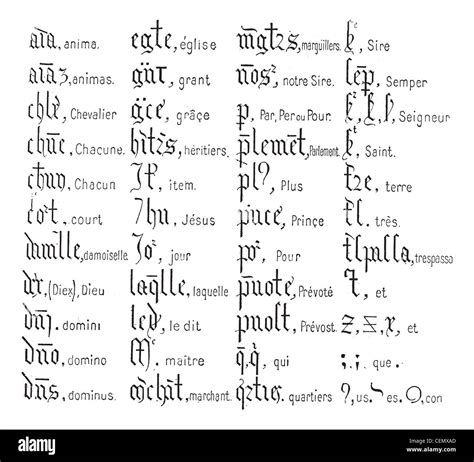 ata, anima. egte, église mgtzs, marguillers. Sire
ataz, animas. gnt, grant nos, notre Sire. sep, Semper
chlr, Chevalier gce, grâce p, Par, Per ou Pour. Seigneur
chuc, Chacune. hitzs, héritiers. plemet, Parlement. Saint.
chun, Chacun It, item. pl9, Plus tre, terre
cort, court Ihu, Jésus puce, Prinçe tl. très.
damlle, damoiselle Jor, jour por, Pour tlpassa, trespasso
dx, (Diex), Dieu laqlle, laquelle puote, Prévoté 7, et
dni. domini led, le dit puost, Prévost. z, z, x, et
dno, domino Me. maitre q, q, qui ; ; que.
dns, dominus. mchat, marchant. qrtiers. quartiers 9, us. es. con
alamy
Image ID: CEMXAD
www.alamy.com